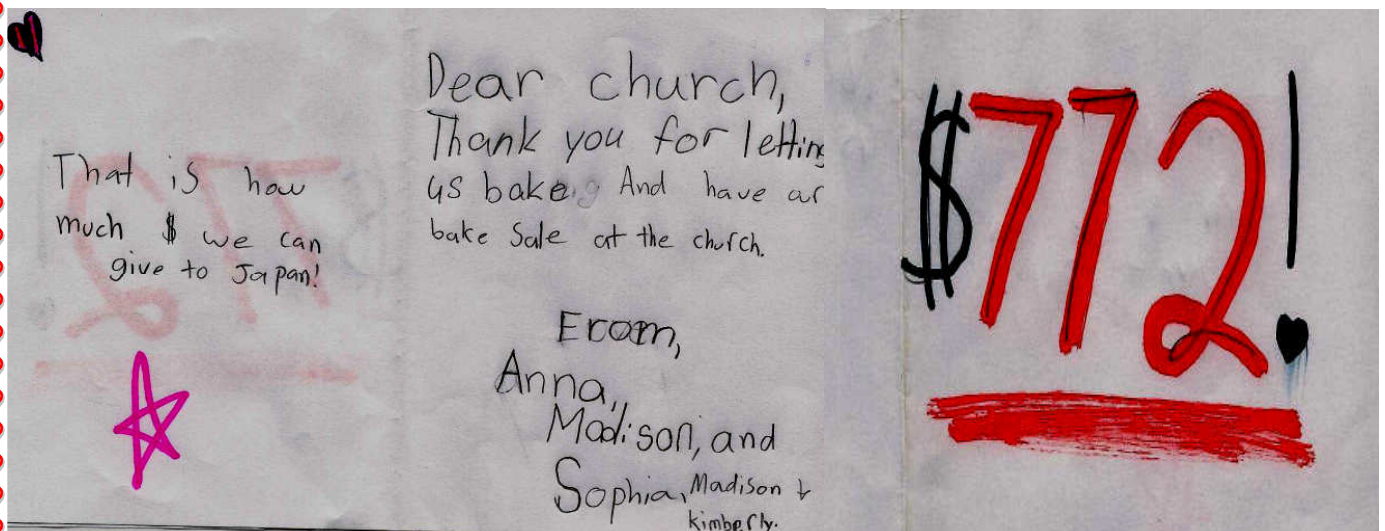 That is how
much $ we can
give to Japan!
Dear church,
Thank you for letting
us bake. And have
bake Sale at the church.
From,
Anna,
Madison, and
Sophia, Madison +
Kimberly.
$772!